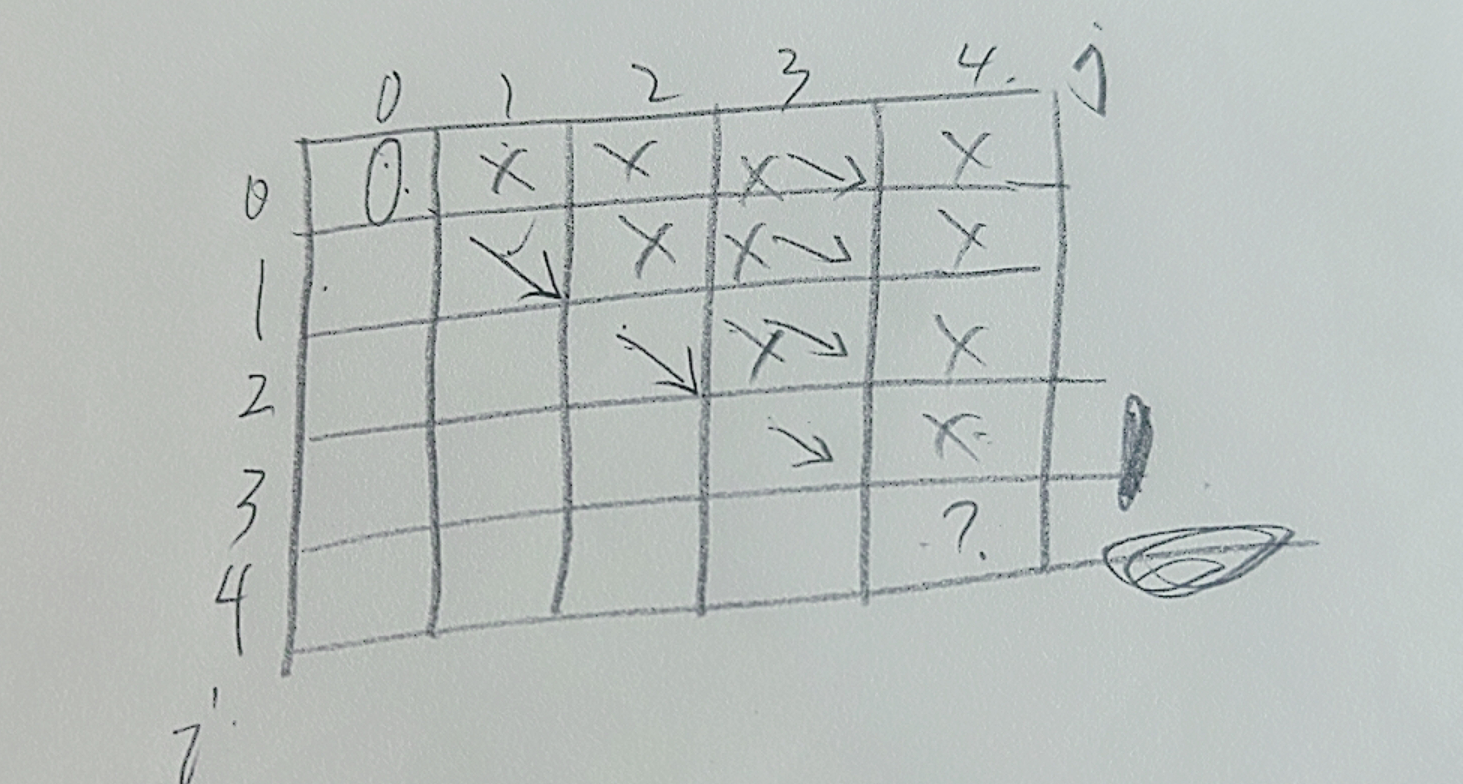 0 1 2 3 4. j
0 0. x x x → x
1 x x → x
2 x → x
3 → x
4 ?.
i